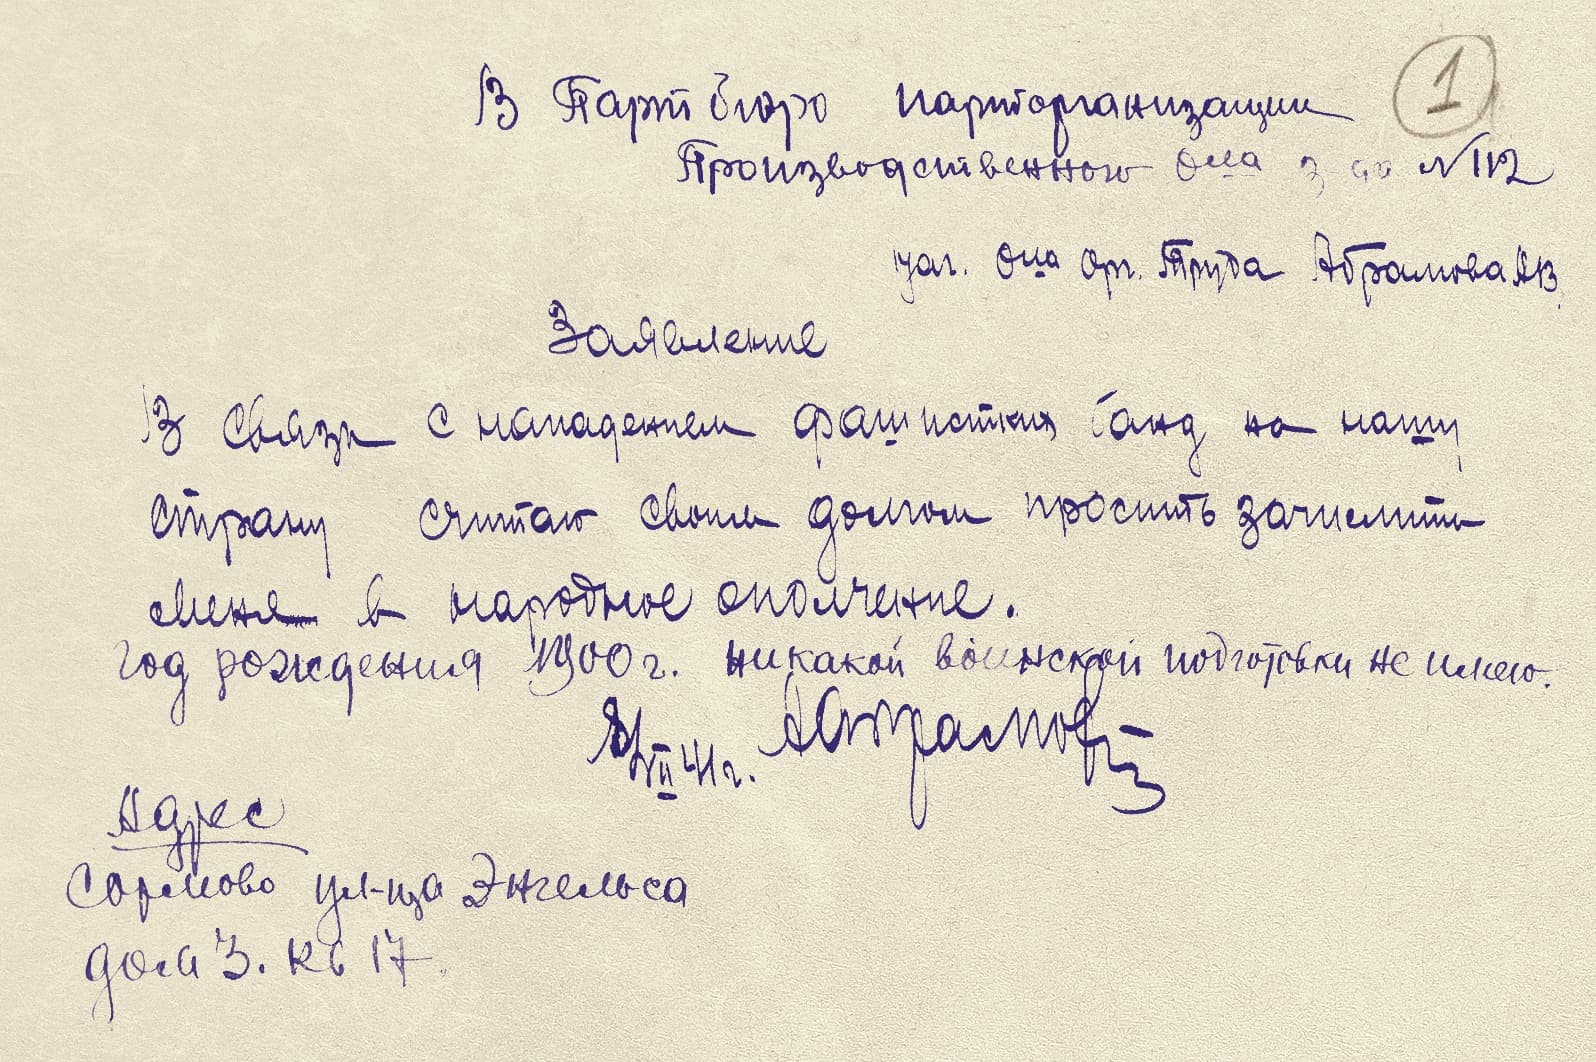 1
В Партбюро парторганизации
Производственного отдела з-да №112
нач. отдела орг. труда Абрамова АВ.
Заявление
В связи с нападением фашистких банд на нашу
страну считаю своим долгом просить зачислить
меня в народное ополчение.
год рождения 1900 г. никакой воинской подготовки не имею.
VII 41 г. Абрамов
Адрес
Сормово ул-ца Энгельса
дом 3. кв 17.